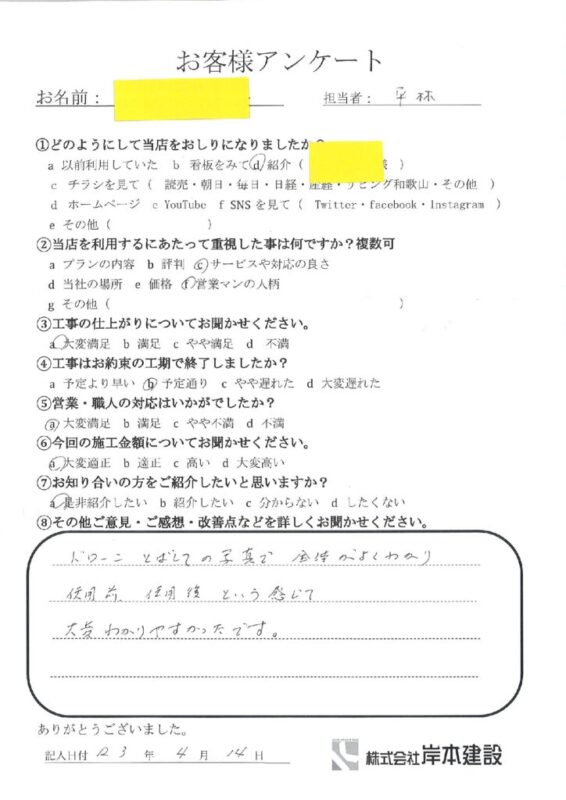 お客様アンケート
お名前：
担当者： 平林
①どのようにして当店をおしりになりましたか？
a 以前利用していた b 看板をみて d 紹介（ 様 ）
c チラシを見て（ 読売・朝日・毎日・日経・産経・リビング和歌山・その他 ）
d ホームページ e YouTube f SNSを見て（ Twitter・facebook・Instagram ）
e その他（ ）
②当店を利用するにあたって重視した事は何ですか？複数可
a プランの内容 b 評判 c サービスや対応の良さ
d 当社の場所 e 価格 f 営業マンの人柄
g その他（ ）
③工事の仕上がりについてお聞かせください。
a 大変満足 b 満足 c やや満足 d 不満
④工事はお約束の工期で終了しましたか？
a 予定より早い b 予定通り c やや遅れた d 大変遅れた
⑤営業・職人の対応はいかがでしたか？
a 大変満足 b 満足 c やや不満 d 不満
⑥今回の施工金額についてお聞かせください。
a 大変適正 b 適正 c 高い d 大変高い
⑦お知り合いの方をご紹介したいと思いますか？
a 是非紹介したい b 紹介したい c 分からない d したくない
⑧その他ご意見・ご感想・改善点などを詳しくお聞かせください。
ドローン とばしての写真で 全体がよくわかり
使用前 使用後 という感じで
大変わかりやすかったです。
ありがとうございました。
記入日付 R3 年 4 月 14 日
株式会社岸本建設